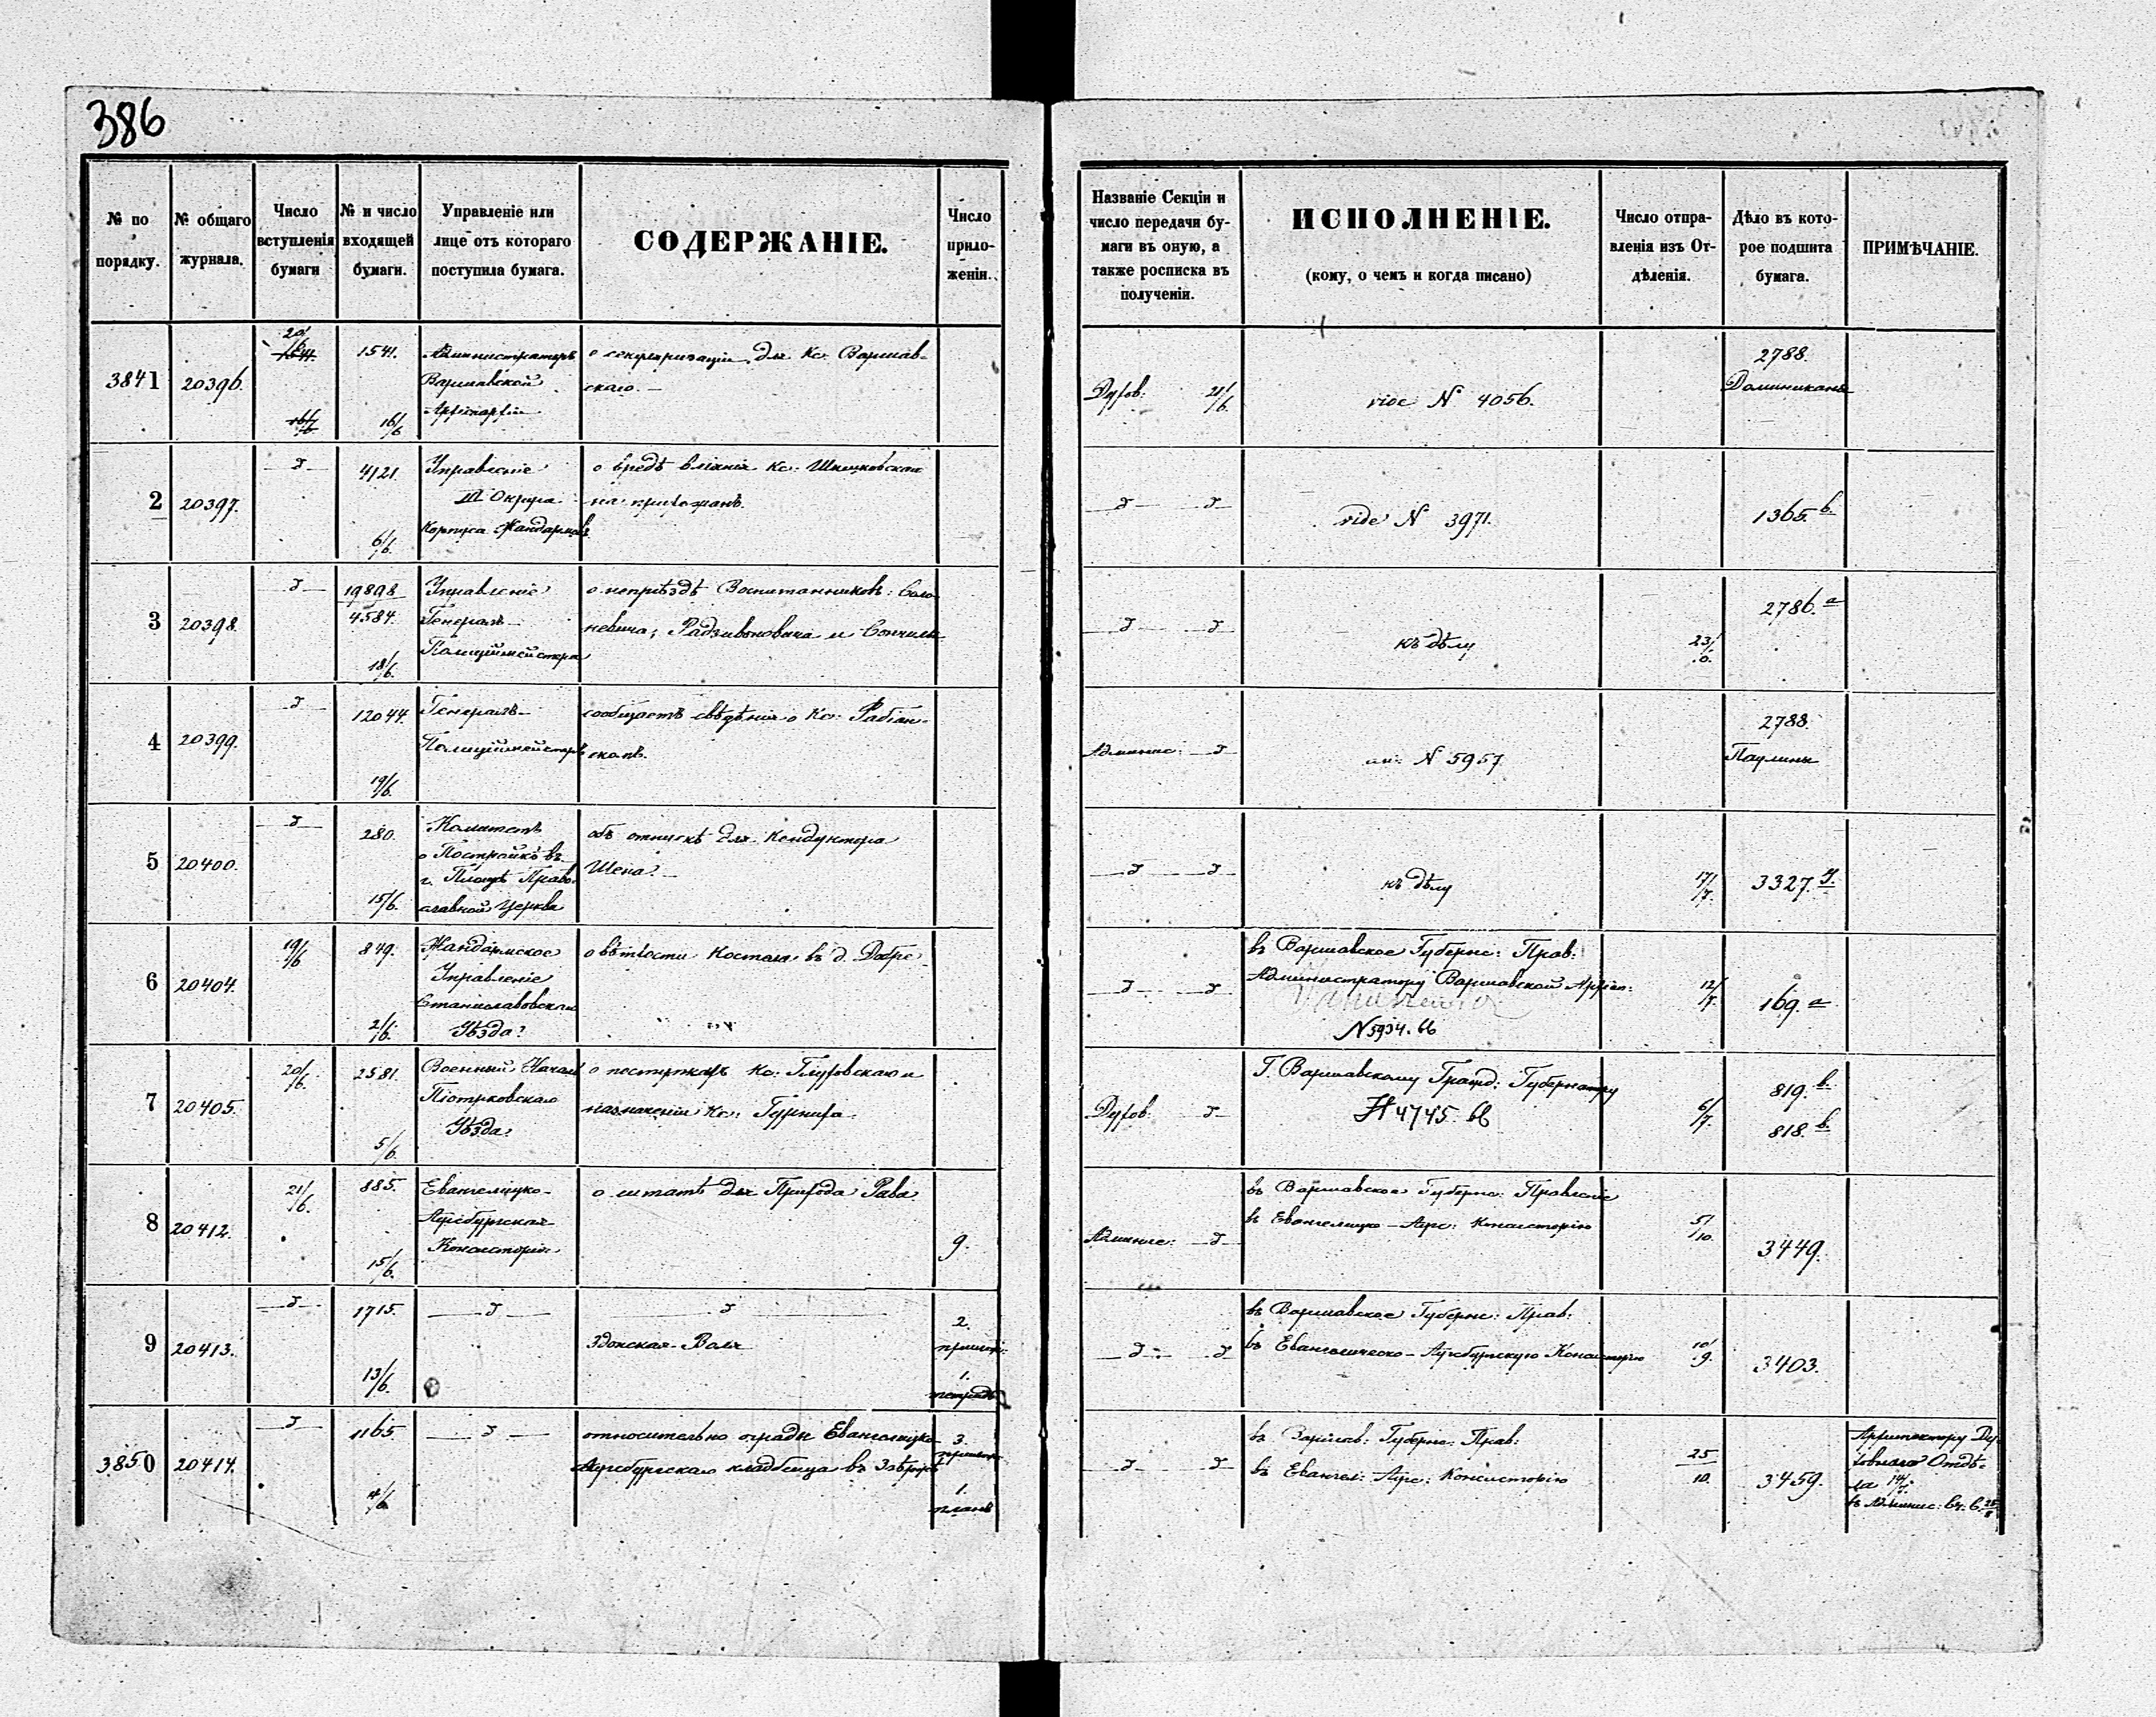 386
№ по порядку.
№ общаго журнала.
Число вступленія бумаги
№ и число входящей бумаги.
Управленіе или лице отъ котораго поступила бумага.
СОДЕРЖАНІЕ.
Число приложеніи.
Названіе Секціи и число передачи бумаги въ оную, а также росписка въ полученіи.
ИСПОЛНЕНІЕ.
(кому, о чемъ и когда писано)
Число отправленія изъ Отдѣленія.
Дѣло въ которое подшита бумага.
ПРИМѢЧАНІЕ.
3841
20396.
20/6
1541.
16/6
Администраторъ
Варшавской
Архіепархіи
о секуляризаціи для Кс: Варшав-
скаго.
Духов: 21/6.
vide N 4056.
2788.
Доминикане
2
20397.
д
4121
6/6.
Управленіе
III Округа
Корпуса Жандармовъ
о вредѣ вліянія Кс: Шишковскаго
на прихожанъ.
д д
vide N 3971.
1365. b.
3
20398.
д
19898
4584.
18/6.
Управленіе
Генералъ-
Полиціймейстера
о непріѣздѣ Воспитанниковъ: Соло-
невича, Радзивоновича и
д д
къ дѣлу
23/6.
2786. a
4
20399.
д
12044.
19/6.
Генералъ-
Полиціймейстеръ
сообщаетъ свѣдѣнія о Кс: Фабіан-
скомъ.
Админис: д
N 5957
2788.
Паулины
5
20400.
д
280.
15/6.
Комитетъ
о Постройкѣ въ
г. Плоцкѣ Право-
славной Церкви
объ отпускѣ для Кондуктора
Шена.
д д
къ дѣлу
17/7.
3327. d.
6
20404.
19/6
849.
2/6.
Жандармское
Управленіе
Станиславовскаго
Уѣзда.
о вѣтхости Костела въ д. Добре
д д
въ Варшавское Губернс: Прав:
Администратору Варшавской Архіеп:
N 5934. 66
12/7.
169. a
7
20405.
20/6.
2581.
5/6.
Военный Начал
Піотрковскаго
Уѣзда.
о поступкахъ Кс: Глуховскаго и
назначеніи Кс: Гурниха.
Духов: д
Г. Варшавскому Гражд: Губернатору
N 4745. 66
6/7.
819. b.
818. b.
8
20412.
21/6.
885.
15/6.
Евангелицко-
Аугсбургская
Консисторія
о штатѣ для Прихода Рава
9.
Админис: д
въ Варшавское Губернс: Правленіе
въ Евангелицко-Аугс: Консисторію
5/10.
3449.
9
20413.
д
1715.
13/6.
д
д
Здонская-Воля
2.
прилож:
1.
тетрадь
д д
въ Варшавское Губернс: Прав:
въ Евангелическо-Аугсбургскую Консисторію
10/9.
3403.
3850
20414.
д
1165.
4/6.
д
относительно ограды Евангелицко-
Аугсбургскаго кладбища въ Згѣржѣ
3.
прилож:
1.
планъ
д д
въ Варшав: Губернс: Прав:
въ Евангел: Аугс: Консисторію
25/10.
3459.
Архитектору Ду-
ховнаго Отдѣ-
ла 14/7.
въ Админис: